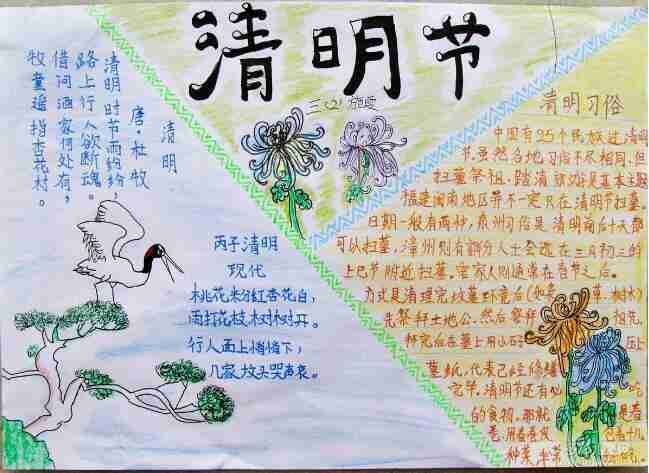 清明节
三(2)
清明
唐·杜牧
清明时节雨纷纷，
路上行人欲断魂。
借问酒家何处有，
牧童遥指杏花村。
丙子清明
现代
桃花粉红杏花白，
雨打花枝树树开。
行人面上悄悄下，
几家坟头哭声哀。
清明习俗
中国有25个民族过清明
节，虽然各地习俗不尽相同，但
扫墓祭祖、踏清
福建闽南地区并不一定只在清明节扫墓。
日期一般有两种，泉州习俗是清明前后十天都
可以扫墓，漳州则有部分人士会选在三月初三的
上巳节附近扫墓。客家人则通常在春节之后。
方式是清理完坟墓环境后(如 草、树木)
先祭拜土地公，然后祭拜 祖先，
拜完后在墓上用小石 压上
墓纸，代表已经修缮
完毕。清明节还有 吃
的食物，那就 是春
卷，用春卷皮 包着十几
种菜，半苹